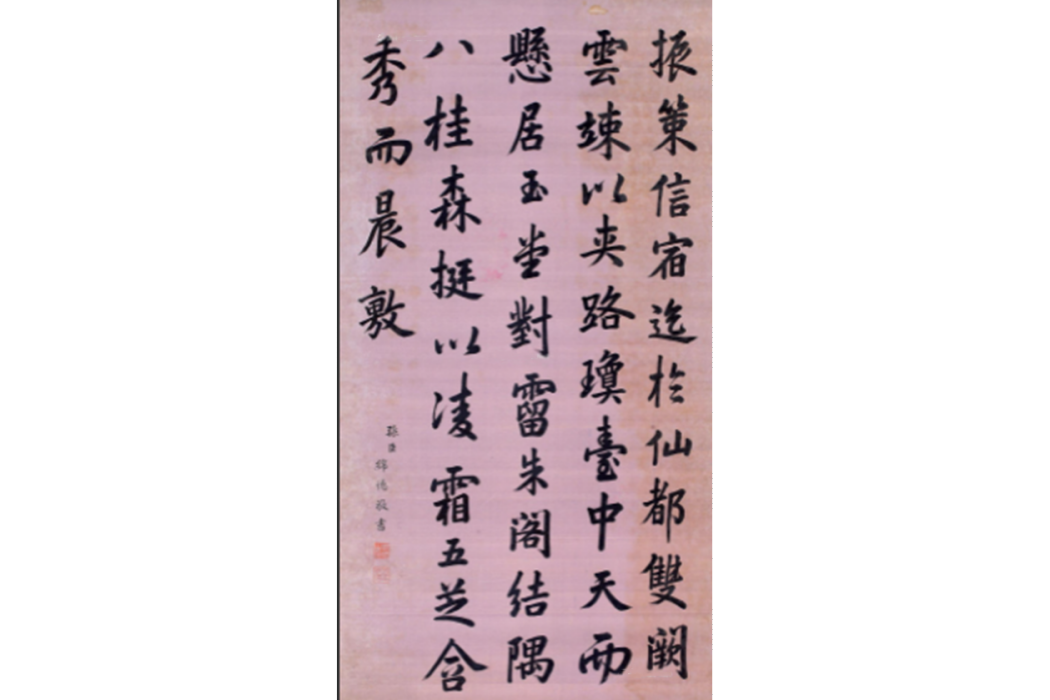 振策信宿迄於仙都雙闕
雲竦以夾路瓊臺中天而
懸居玉堂對霤朱閣結隅
八桂森挺以凌霜五芝含
秀而晨敷
孫臣綿德敬書